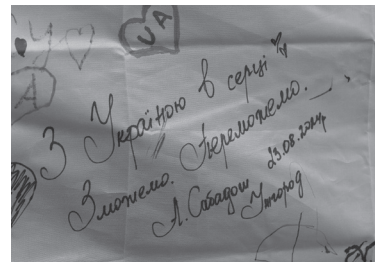 UA
З Україною в серці
Зможемо. Переможемо.
А. Сабадош 23.08.2024р
Ужгород